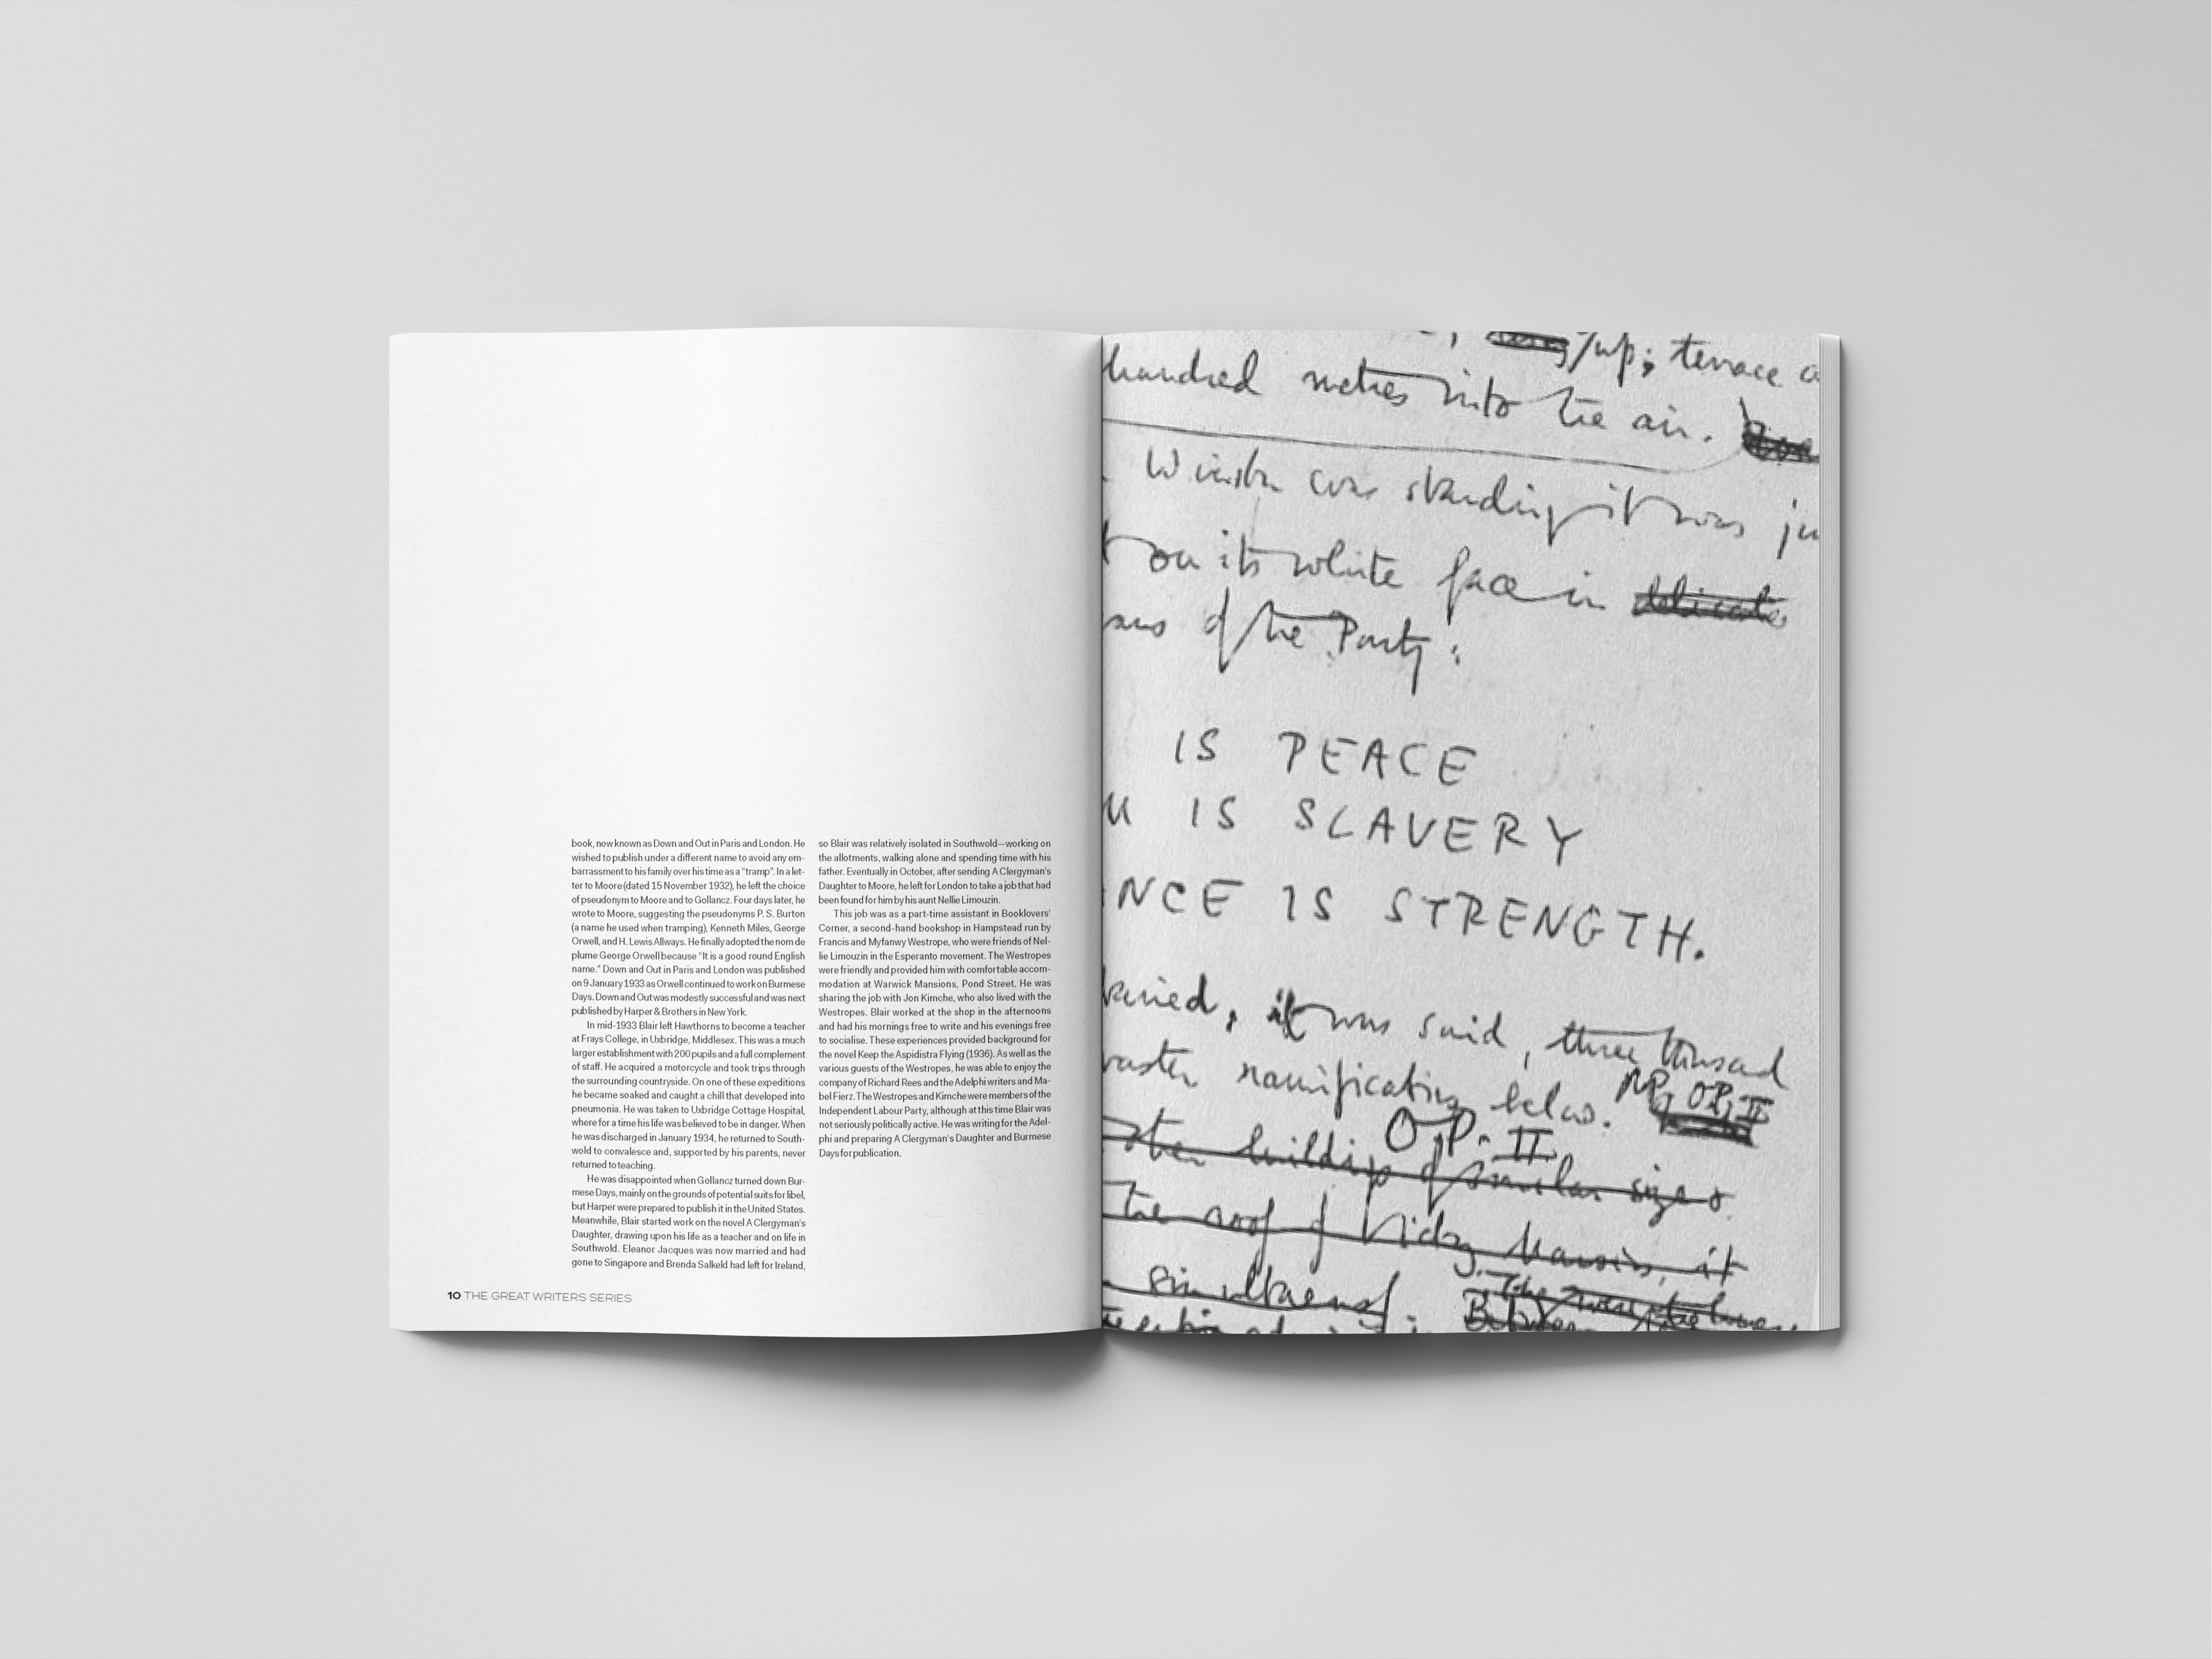 book, now known as Down and Out in Paris and London. He
wished to publish under a different name to avoid any em-
barrassment to his family over his time as a "tramp". In a let-
ter to Moore (dated 15 November 1932), he left the choice
of pseudonym to Moore and to Gollancz. Four days later, he
wrote to Moore, suggesting the pseudonyms P. S. Burton
(a name he used when tramping), Kenneth Miles, George
Orwell, and H. Lewis Allways. He finally adopted the nom de
plume George Orwell because "It is a good round English
name." Down and Out in Paris and London was published
on 9 January 1933 as Orwell continued to work on Burmese
Days. Down and Out was modestly successful and was next
published by Harper & Brothers in New York.
In mid-1933 Blair left Hawthorns to become a teacher
at Frays College, in Uxbridge, Middlesex. This was a much
larger establishment with 200 pupils and a full complement
of staff. He acquired a motorcycle and took trips through
the surrounding countryside. On one of these expeditions
he became soaked and caught a chill that developed into
pneumonia. He was taken to Uxbridge Cottage Hospital,
where for a time his life was believed to be in danger. When
he was discharged in January 1934, he returned to South-
wold to convalesce and, supported by his parents, never
returned to teaching.
He was disappointed when Gollancz turned down Bur-
mese Days, mainly on the grounds of potential suits for libel,
but Harper were prepared to publish it in the United States.
Meanwhile, Blair started work on the novel A Clergyman's
Daughter, drawing upon his life as a teacher and on life in
Southwold. Eleanor Jacques was now married and had
gone to Singapore and Brenda Salkeld had left for Ireland,
so Blair was relatively isolated in Southwold—working on
the allotments, walking alone and spending time with his
father. Eventually in October, after sending A Clergyman's
Daughter to Moore, he left for London to take a job that had
been found for him by his aunt Nellie Limouzin.
This job was as a part-time assistant in Booklovers'
Corner, a second-hand bookshop in Hampstead run by
Francis and Myfanwy Westrope, who were friends of Nel-
lie Limouzin in the Esperanto movement. The Westropes
were friendly and provided him with comfortable accom-
modation at Warwick Mansions, Pond Street. He was
sharing the job with Jon Kimche, who also lived with the
Westropes. Blair worked at the shop in the afternoons
and had his mornings free to write and his evenings free
to socialise. These experiences provided background for
the novel Keep the Aspidistra Flying (1936). As well as the
various guests of the Westropes, he was able to enjoy the
company of Richard Rees and the Adelphi writers and Ma-
bel Fierz. The Westropes and Kimche were members of the
Independent Labour Party, although at this time Blair was
not seriously politically active. He was writing for the Adel-
phi and preparing A Clergyman's Daughter and Burmese
Days for publication.
10 THE GREAT WRITERS SERIES
up; terrace
hundred metres into the air.
Winston was standing it was ju
on its white face in delicate
of the Party:
IS PEACE
IS SLAVERY
NCE IS STRENGTH.
it was said, three thousand
ramifications below.
OP. II
building of similar size
the roof of Victory Mansions, it